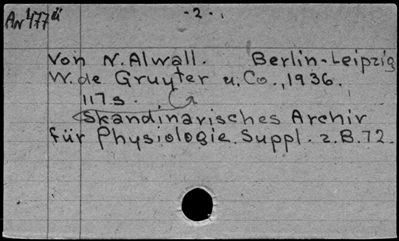 AN 477 ü
- 2 -.
Von N. Alwall. Berlin-Leipzig
W. de Gruyter u. Co., 1936.
117 s.
Skandinarisches Archiv
für Physiologie. Suppl. z. B. 72.